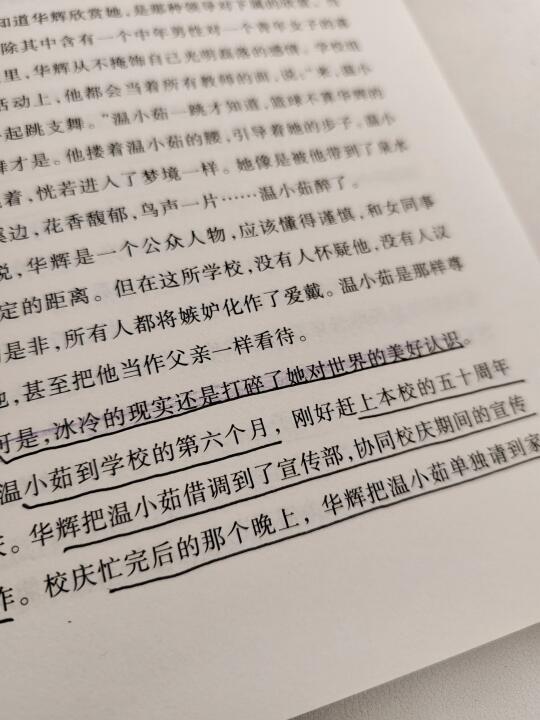 知道华辉欣赏她，是那种领导对下属的欣赏。当
除其中含有一个中年男性对一个青年女子的喜
里，华辉从不掩饰自己光明磊落的感情。学校组
活动上，他都会当着所有教师的面，说，“来，温小
一起跳支舞。”温小茹一跳才知道，篮球不算华辉的
舞才是。他搂着温小茹的腰，引导着她的步子。温小
着，恍若进入了梦境一样。她像是被他带到了泉水
溪边，花香馥郁，鸟声一片……温小茹醉了。
说，华辉是一个公众人物，应该懂得谨慎，和女同事
定的距离。但在这所学校，没有人怀疑他，没有人议
是非，所有人都将嫉妒化作了爱戴。温小茹是那样尊
他，甚至把他当作父亲一样看待。
可是，冰冷的现实还是打碎了她对世界的美好认识。
温小茹到学校的第六个月，刚好赶上本校的五十周年
。华辉把温小茹借调到了宣传部，协同校庆期间的宣传
作。校庆忙完后的那个晚上，华辉把温小茹单独请到家